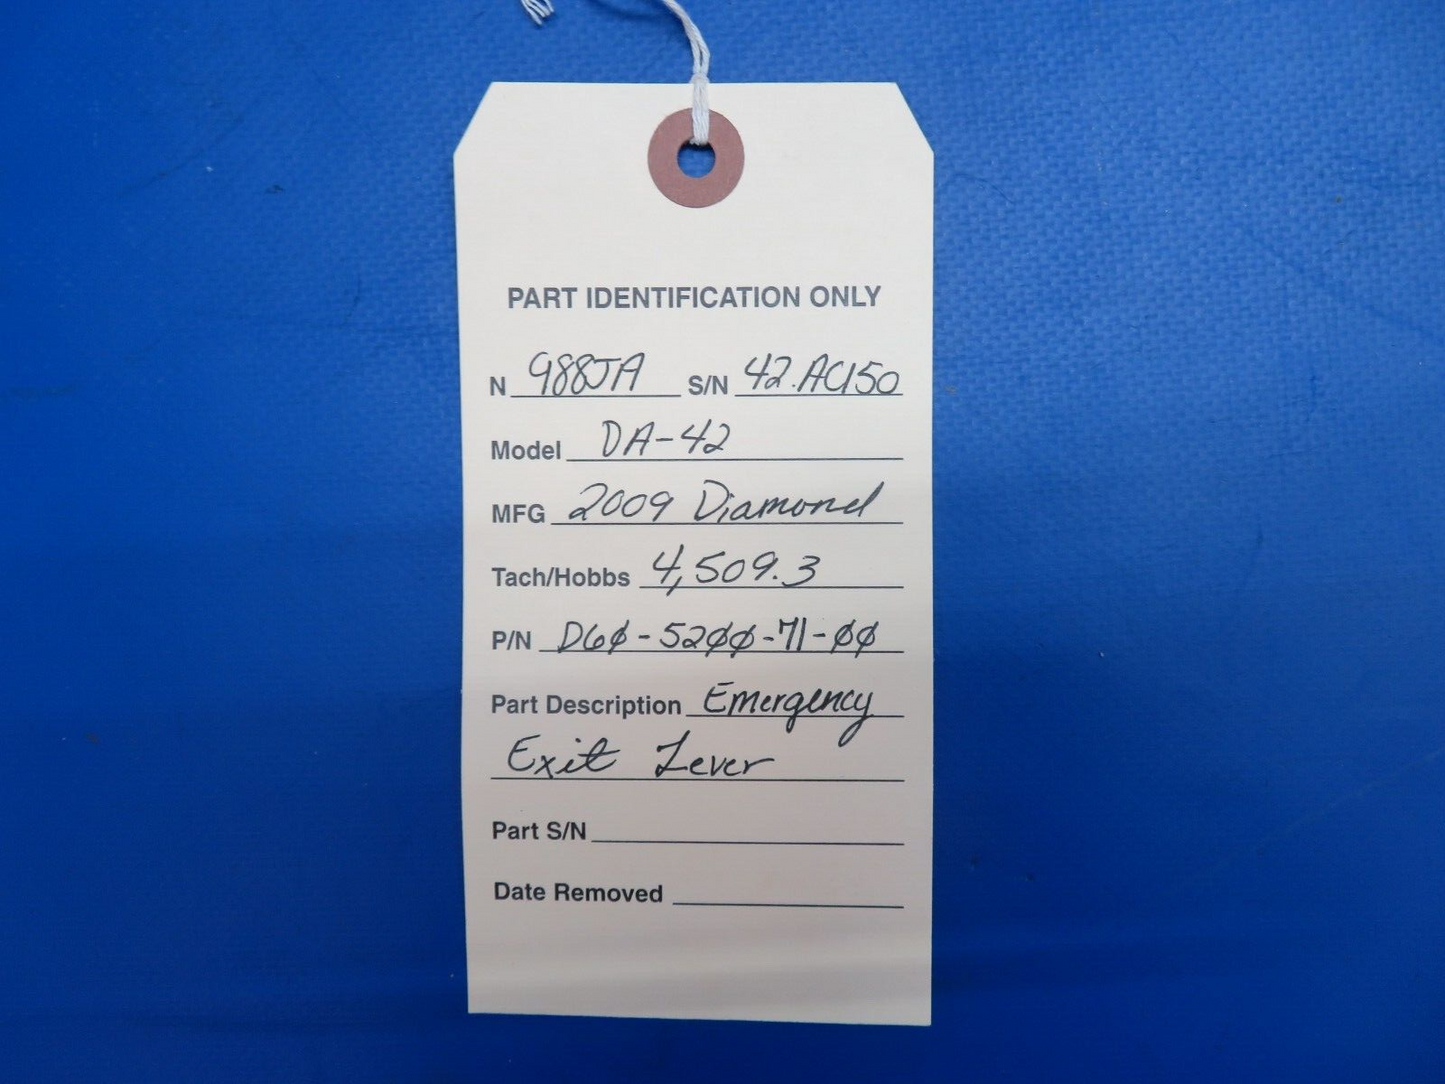 PART IDENTIFICATION ONLY
N 988JA S/N 42.AC150
Model DA-42
MFG 2009 Diamond
Tach/Hobbs 4,509.3
P/N D60-5200-71-00
Part Description Emergency
Exit Lever
Part S/N
Date Removed